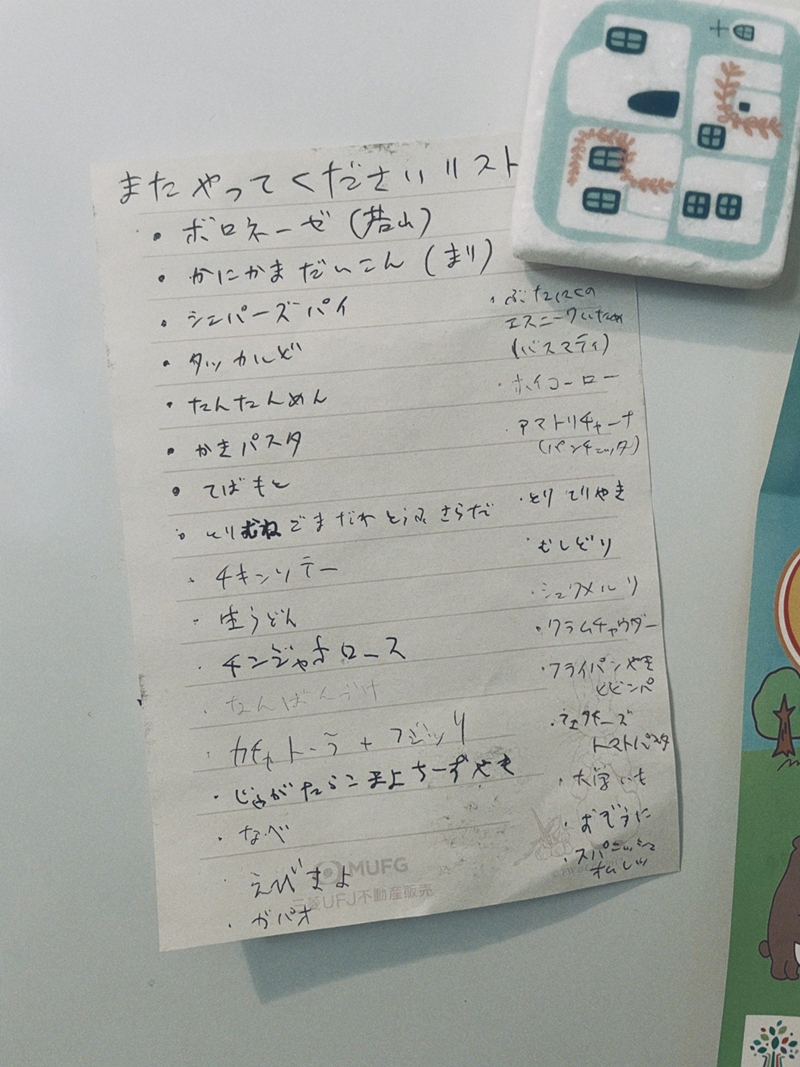 またやってくださいリスト
・ボロネーゼ(若山)
・かにかまだいこん(まり)
・シェパーズパイ
・タッカルビ
・たんたんめん
・かきパスタ
・てばもと
・とりむねごまだれとうふさらだ
・チキンソテー
・生うどん
・チンジャオロース
・なんばんづけ
カチャトーラ+フジッリ
・じゃがたらこまよちーずやき
・なべ
えびまよ
・ガパオ
・ぶたにくの
エスニックいため
(バスマティ)
・ホイコーロー
・アマトリチャーナ
(パンチェッタ)
・とりてりやき
・むしどり
・シュクメルリ
・クラムチャウダー
・フライパンやき
ビビンバ
チーズ
トマトパスタ
・大学いも
・おぞうに
・スパニッシュ
オムレツ
MUFG
三菱UFJ不動産販売